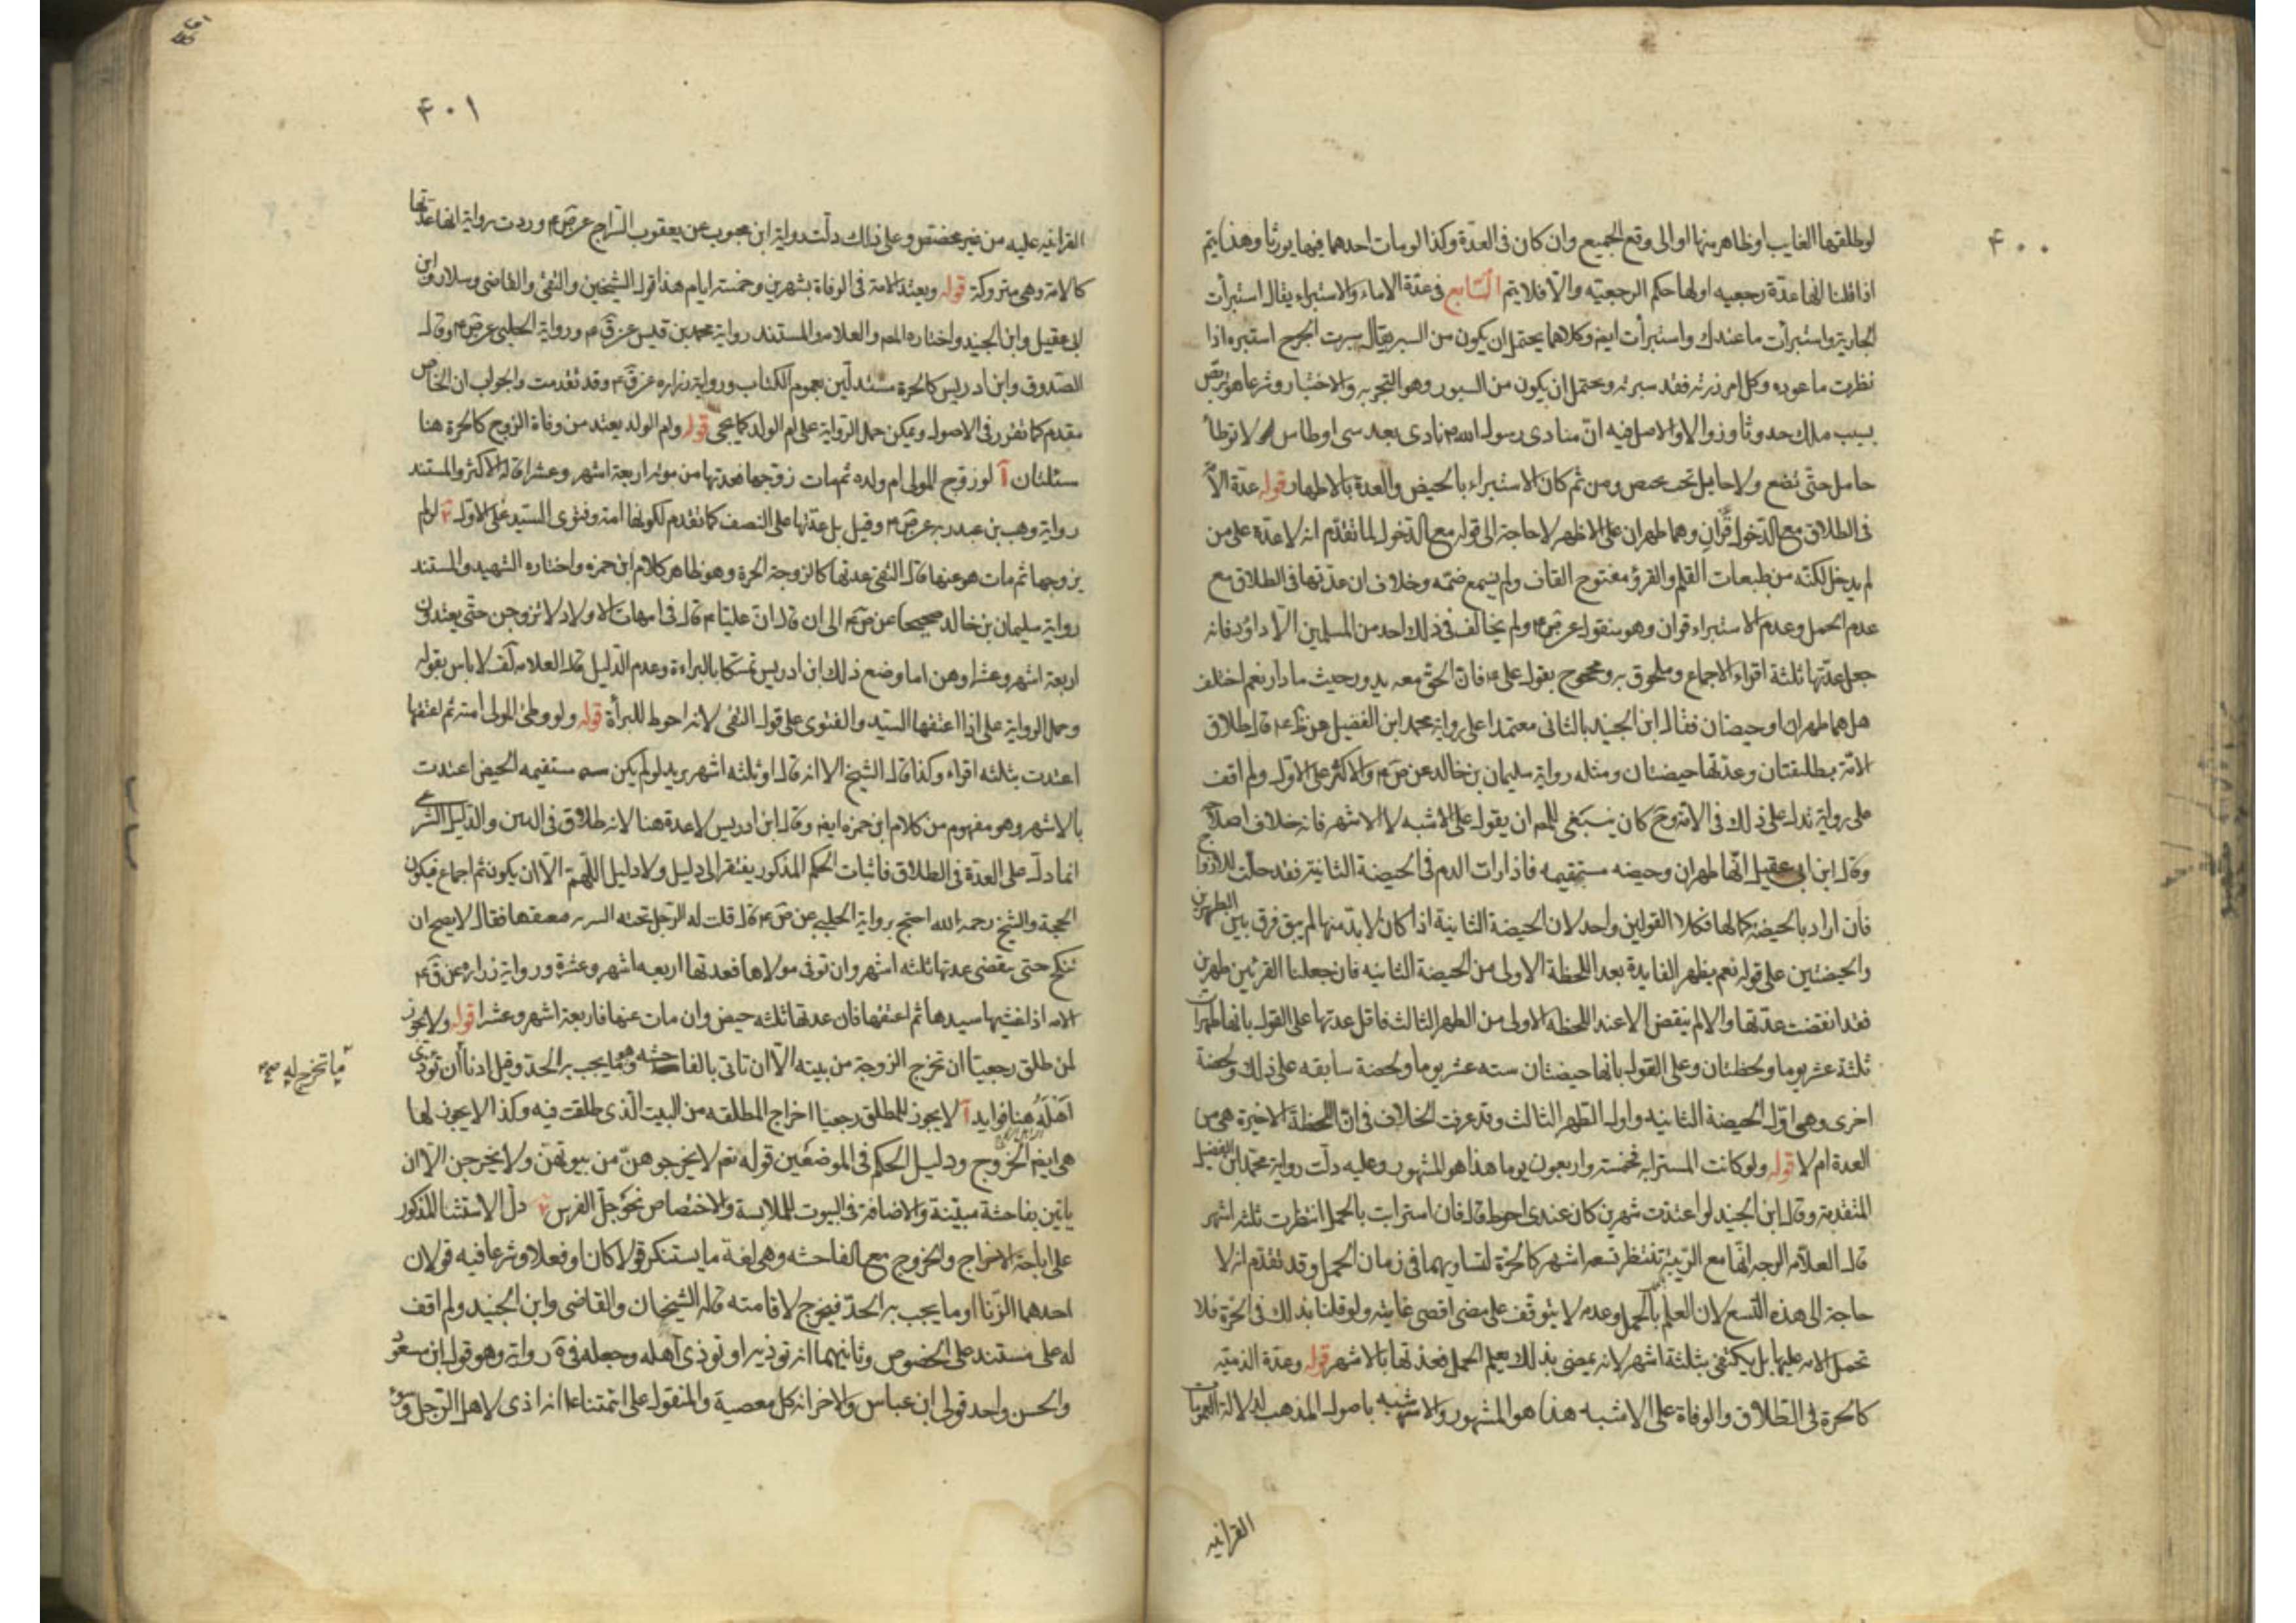 ۴۰۰
لو طلقها الغايب او ظاهر منها او الى وقع الجميع وان كان فى العدة وكذا لو مات احدهما فيها يورثا وهذا يتم
اذا قلنا انها عدة رجعيه او لها حكم الرجعيه والا فلا يتم السابع فى عدة الاماء والاستبراء يقال استبرأت
الجارية واستبرأت ما عندك واستبرأت ايضا وكلاهما يحتمل ان يكون من السبر يقال سبرت الجرح اسبره اذا
نظرت ما غوره وكل امر زرته فقد سبرته ويحتمل ان يكون من السبور وهو التجربه والاختبار وشرعا هو تربص
بسبب ملك حدوثا وزوالا والاصل فيه ان منادى رسول الله نادى بعد سبى اوطاس لا توطأ
حامل حتى تضع ولا حايل حتى ومن ثم كان الاستبراء بالحيض والعدة بالاطهار قوله عدة الأمة
فى الطلاق مع الدخول قرآن وهما طهران على الاظهر لا حاجة الى قوله مع الدخول لما تقدم انه لا عدة على من
لم يدخل لكنه من طبعات القلم والقرؤ مفتوح القاف ولم يسمع ضمه وخلاف ان عدتها فى الطلاق مع
عدم الحمل وعدم الاستبراء قرآن وهو منقول عن ص م ولم يخالف فى ذلك احد من المسلمين الا داود فانه
جعل عدتها ثلثة اقراء والاجماع وملحوق به ومحجوج بقول على ع فان الحق معه يدور حيث ما دار نعم اختلف
هل هما طهران او حيضان فقال ابن الجنيد بالثانى معتمدا على رواية محمد ابن الفضيل عن ظ ع قال طلاق
الامة بطلقتان وعدتها حيضتان ومثله رواية سليمان بن خالد عن ص م والاكثر على الاول ولم اقف
على رواية تدل على ذلك فى الامة وح كان ينبغى للمص ان يقول على الاشبه لا الاشهر فانه خلاف اصلاحه
وقال ابن ابى عقيل انها طهران وحيضه مستقيمه فاذا رات الدم فى الحيضة الثانية فقد حلت للازواج
فان اراد بالحيضة كمالها فكلا القولين واحد لان الحيضة الثانية اذا كان لا بد منها لم يبق فرق بين الطهرين
والحيضتين على قوله نعم يظهر الفايدة بعد اللحظة الاولى من الحيضة الثانيه فان جعلنا القرئين طهرين
فقد انقضت عدتها والا لم ينقض الا عند اللحظه الاولى من الطهر الثالث فاقل عدتها على القول بانها طهران
ثلثة عشر يوما ولحظتان وعلى القول بانها حيضتان سته عشر يوما ولحضة سابقه على ذلك ولحضة
اخرى وهى اول الحيضة الثانيه واول الطهر الثالث وقد عرفت الخلاف فى ان اللحظة الاخيرة هى من
العدة ام لا قوله ولو كانت المسترابه فخمسة واربعون يوما هذا هو المشهور وعليه دلت رواية محمد ابن الفضيل
المتقدمة وقال ابن الجنيد لو اعتدت شهرين كان عندى احوط قال فان استرابت بالحمل انتظرت ثلثه اشهر
قال العلامه الوجه انها مع الريبة تنتظر تسعه اشهر كالحرة لتساويهما فى زمان الحمل وقد تقدم انه لا
حاجة الى هذه التسع لان العلم بالحمل وعدمه لا يتوقف على مضى اقصى غايته ولو قلنا بذلك فى الحرة فلا
تحمل الامه عليها بل يكتفى بثلثة اشهر لانه بمضى بذلك يعلم الحمل فعدتها بالاشهر قوله وعدة الذميه
كالحرة فى الطلاق والوفاة على الاشبه هذا هو المشهور والاشبه باصول المذهب لدلالة العمومات
القرانيه
۴۰۱
القرانيه عليه من غير مخصص وعلى ذلك دلت رواية ابن محبوب عن يعقوب السراج عن ص م ووردت رواية انها عدتها
كالامة وهى متروكة قوله ويعتد الامة فى الوفاة بشهرين وخمسة ايام هذا قول الشيخين والتقى والقاضى وسلار وابن
ابى عقيل وابن الجنيد واختاره المص والعلامه والمستند رواية محمد بن قيس عن ق م ورواية الحلبى عن ص م وقال
الصدوق وابن ادريس كالحرة مستدلين بعموم الكتاب ورواية زراره عن ق م وقد تقدمت والجواب ان الخاص
مقدم كما تقرر فى الاصول ويمكن حمل الرواية على ام الولد كما يجى قوله وام الولد يعتد من وفاة الزوج كالحرة هنا
مسئلتان آ لو زوج المولى ام ولده ثم مات زوجها فعدتها من موته اربعة اشهر وعشرا قاله الاكثر والمستند
رواية وهب بن عبد ربه عن ص م وقيل بل عدتها على النصف كما تقدم لكونها امة وفتوى السيد على الاول ب لو لم
يزوجها ثم مات هو عنها قال التقى عدتها كالزوجة الحرة وهو ظاهر كلام ابن حمزه واختاره الشهيد والمستند
رواية سليمان بن خالد صحيحا عن ص م الى ان قال ان عليا م قال فى امهات الاولاد لا تزوجن حتى يعتدن
اربعة اشهر وعشرا وهن اما وضع ذلك ابن ادريس تمسكا بالبراءة وعدم الدليل قال العلامه فى لف لا باس بقوله
وحمل الرواية على اذا اعتقها السيد والفتوى على قول التقى لانه احوط للبرأة قوله ولو وطئ المولى امته ثم اعتقها
اعتدت بثلثه اقراء وكذا قال الشيخ الا انه قال او ثلثه اشهر يريد لو لم يكن مستقيمه الحيض اعتدت
بالاشهر وهو مفهوم من كلام ابن حمزه ايضا وقال ابن ادريس لا عدة هنا لانه طلاق فى البين والدليل الشرعى
انما دل على العدة فى الطلاق فاثبات الحكم المذكور يفتقر الى دليل ولا دليل اللهم الا ان يكون ثم اجماع فيكون
الحجة والشيخ رحمه الله احتج برواية الحلبى عن ص م قال قلت له الرجل تحته السريه فيعتقها فقال لا يصح ان
تنكح حتى ينقضى عدتها ثلثه اشهر وان توفى مولاها فعدتها اربعه اشهر وعشرة ورواية زراره عن ق م
الامه اذا غشيها سيدها ثم اعتقها فان عدتها ثلثه حيض وان مات عنها فاربعة اشهر وعشرا قوله ولا يجوز
لمن طلق رجعيا ان تخرج الزوجة من بيته الا ان تاتى بالفاحشه وهو ما يجب به الحد وقيل ادناه ان تؤذى
اهله هنا فوايد آ لا يجوز للمطلق رجعيا اخراج المطلقه من البيت الذى طلقت فيه وكذا لا يجوز لها
هى ايضا الخروج ودليل الحكم فى الموضعين قوله تعم لا تخرجوهن من بيوتهن ولا يخرجن الا ان
ياتين بفاحشة مبينة والاضافة فى البيوت للملابسة والاختصاص نحو جل الفرس ب دل الاستثنا المذكور
على اباحة الاخراج والخروج مع الفاحشه وهى لغة ما يستنكر قولا كان او فعلا وشرعا فيه قولان
احدهما الزنا او ما يجب به الحد فيخرج لاقامته قاله الشيخان والقاضى وابن الجنيد ولم اقف
له على مستند على الخصوص وثانيهما انه توذيه او توذى اهله وجعله فى ية رواية وهو قول ابن مسعود
والحسن واحد قولى ابن عباس والاخر انه كل معصية والمنقول على ائمتنا انه اذى لاهل الرجل
ما تخرج له صح